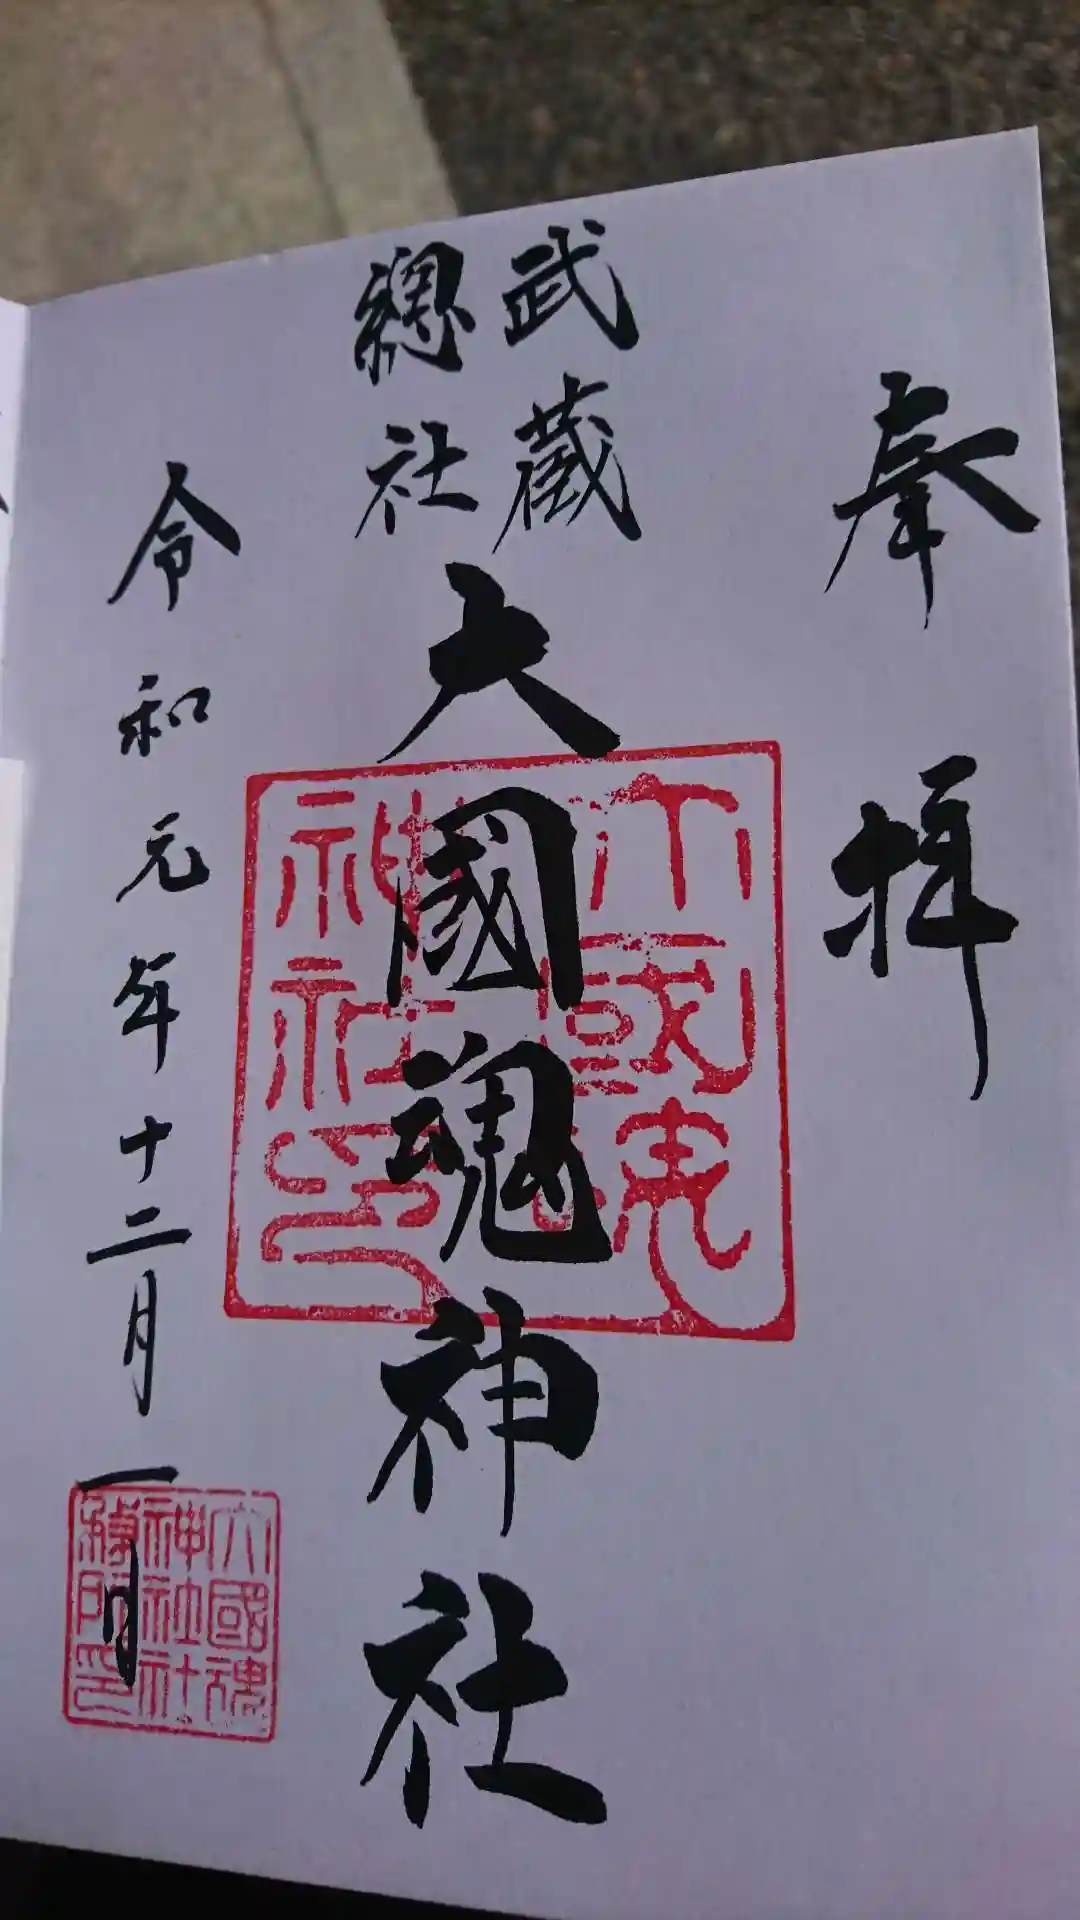 奉拝
武蔵
總社
大國魂神社
令和元年十二月一日
大國魂
神社印
大國魂
神社社
務所印